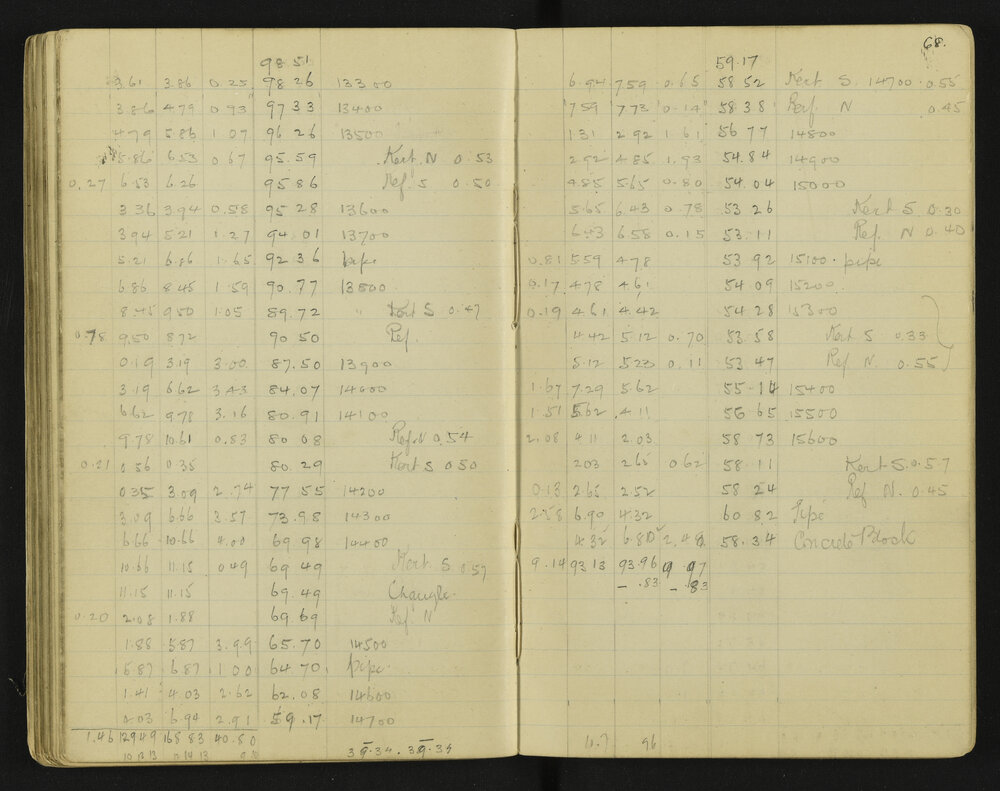 98 51
3.61 3.86 0.25 98 26 13300
3.86 4.79 0.93 97 33 13400
4.79 5.86 1.07 96 26 13500
5.86 6.53 0.67 95.59 Kerb N 0.53
0.27 6.53 6.26 95 86 Ref. S 0.50
3.36 3.94 0.58 95 28 13600
3.94 5.21 1.27 94.01 13700
5.21 6.86 1.65 92 36 pipe
6.86 8.45 1.59 90.77 13800
8.45 9.50 1.05 89.72 Kerb S 0.47
0.78 9.50 8.72 90 50 Ref.
0.19 3.19 3.00 87.50 13900
3.19 6.62 3.43 84.07 14000
6.62 9.78 3.16 80.91 14100
9.78 10.61 0.83 80 08 Ref. N 0.54
0.21 0.56 0.35 80.29 Kerb S 0.50
0.35 3.09 2.74 77 55 14200
3.09 6.66 3.57 73.98 14300
6.66 10.66 4.00 69 98 14400
10.66 11.15 0.49 69 49 Kerb S 0.57
11.15 11.15 69.49 Change
0.20 2.08 1.88 69 69 Ref. N
1.88 5.87 3.99 65.70 14500
5.87 6.87 1.00 64 70 pipe
1.41 4.03 2.62 62.08 14600
4.03 6.94 2.91 59.17 14700
1.46 129 49 168 83 40.80
39.34. 39.34
68.
59.17
6.94 7.59 0.65 58 52 Kerb S. 14700 0.55
7.59 7.73 0.14 58 38 Ref N 0.45
1.31 2.92 1.61 56 77 14800
2.92 4.85 1.93 54.84 14900
4.85 5.65 0.80 54.04 15000
5.65 6.43 0.78 53 26 Kerb S 0.30
6.43 6.58 0.15 53.11 Ref. N 0.40
0.81 5.59 4.78 53 92 15100. pipe
0.17 4.78 4.61 54 09 15200
0.19 4.61 4.42 54 28 15300
4.42 5.12 0.70 53.58 Kerb S 0.33
5.12 5.23 0.11 53 47 Ref N. 0.55
1.67 7.29 5.62 55.14 15400
1.51 5.62 4.11 56 65 15500
2.08 4.11 2.03 58 73 15600
2.03 2.65 0.62 58 11 Kerb S. 0.57
0.13 2.65 2.52 58 24 Ref N. 0.45
2.58 6.90 4.32 60 82 Pipe
4.32 6.80 2.48 58.34 Concrete Block
9.14 93 13 93.96 9 97
- .83 - .83
96